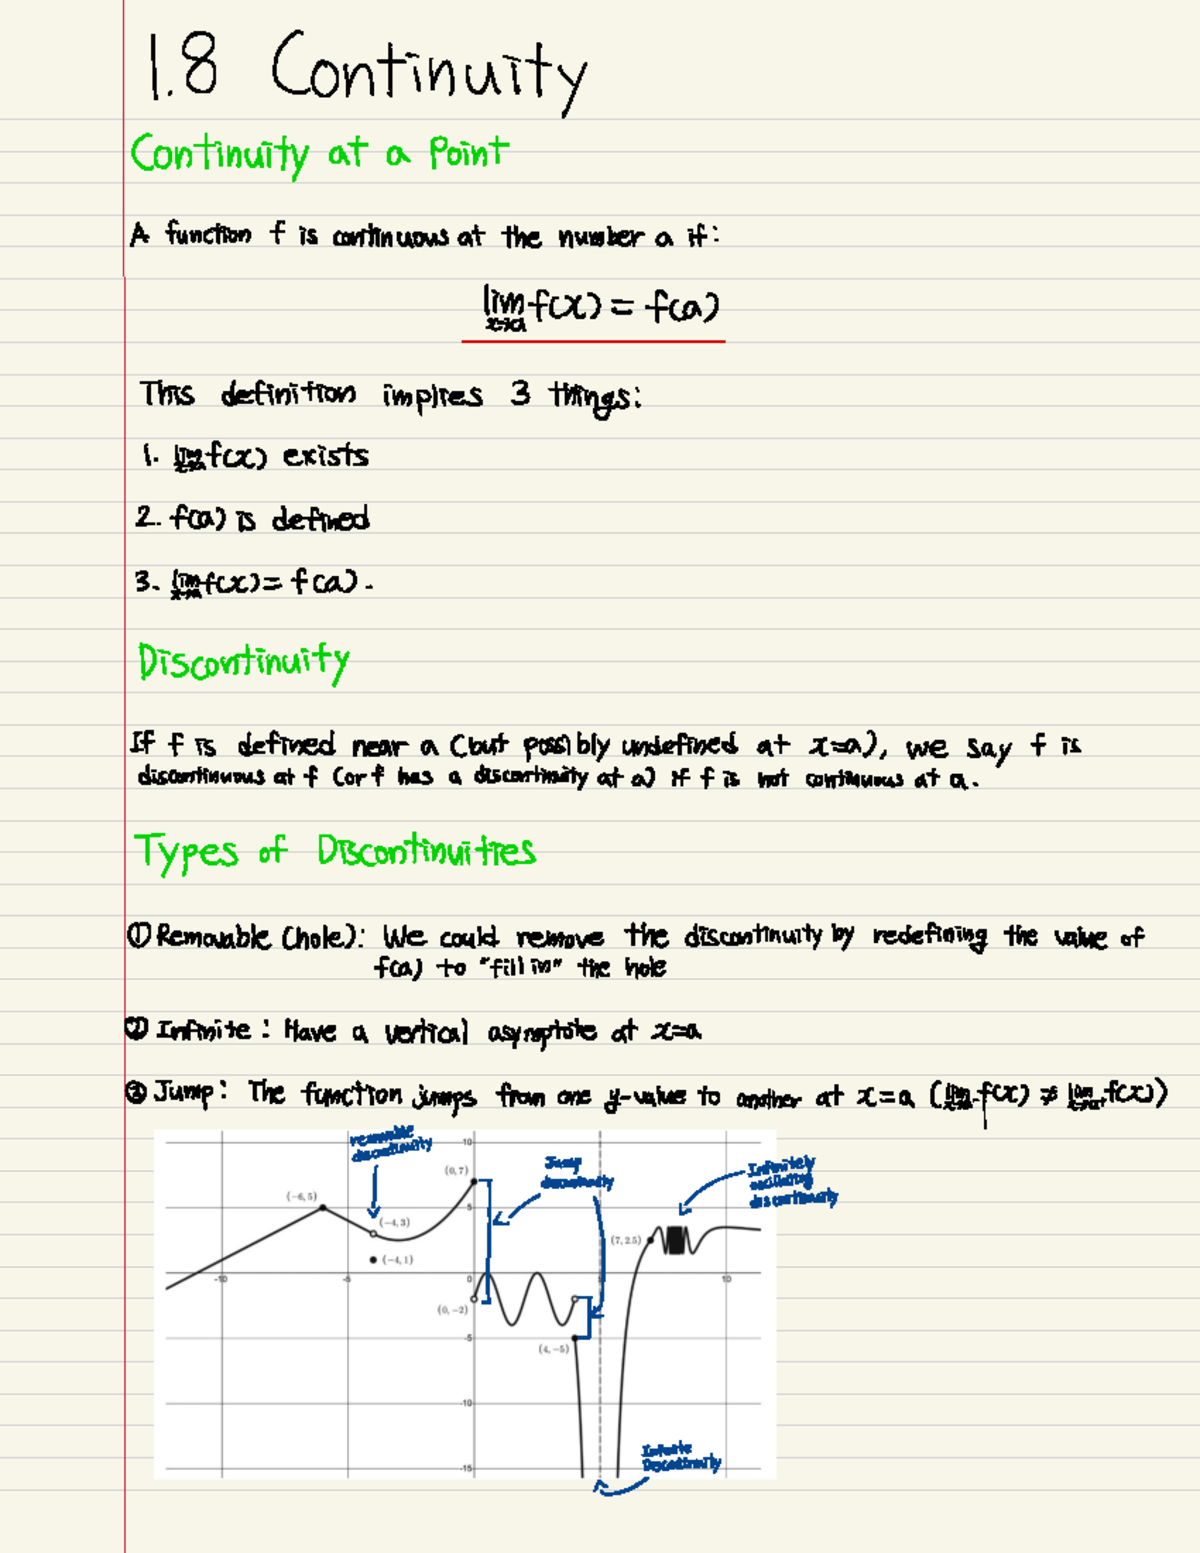 1.8 Continuity
Continuity at a Point
A function f is continuous at the number a if:
lim x→a f(x) = f(a)
This definition implies 3 things:
1. lim x→a f(x) exists
2. f(a) is defined
3. lim x→a f(x) = f(a).
Discontinuity
If f is defined near a (but possibly undefined at x=a), we say f is
discontinuous at f (or f has a discontinuity at a) if f is not continuous at a.
Types of Discontinuities
① Removable (hole): We could remove the discontinuity by redefining the value of
f(a) to "fill in" the hole
② Infinite: Have a vertical asymptote at x=a
③ Jump: The function jumps from one y-value to another at x=a (lim x→a⁻ f(x) ≠ lim x→a⁺ f(x))
removable
discontinuity
10
(0, 7)
Jump
discontinuity
Infinitely
oscillating
discontinuity
(−6, 5)
5
(−4, 3)
(7, 2.5)
(−4, 1)
-10
-5
0
10
(0, −2)
-5
(4, −5)
-10
Infinite
Discontinuity
-15